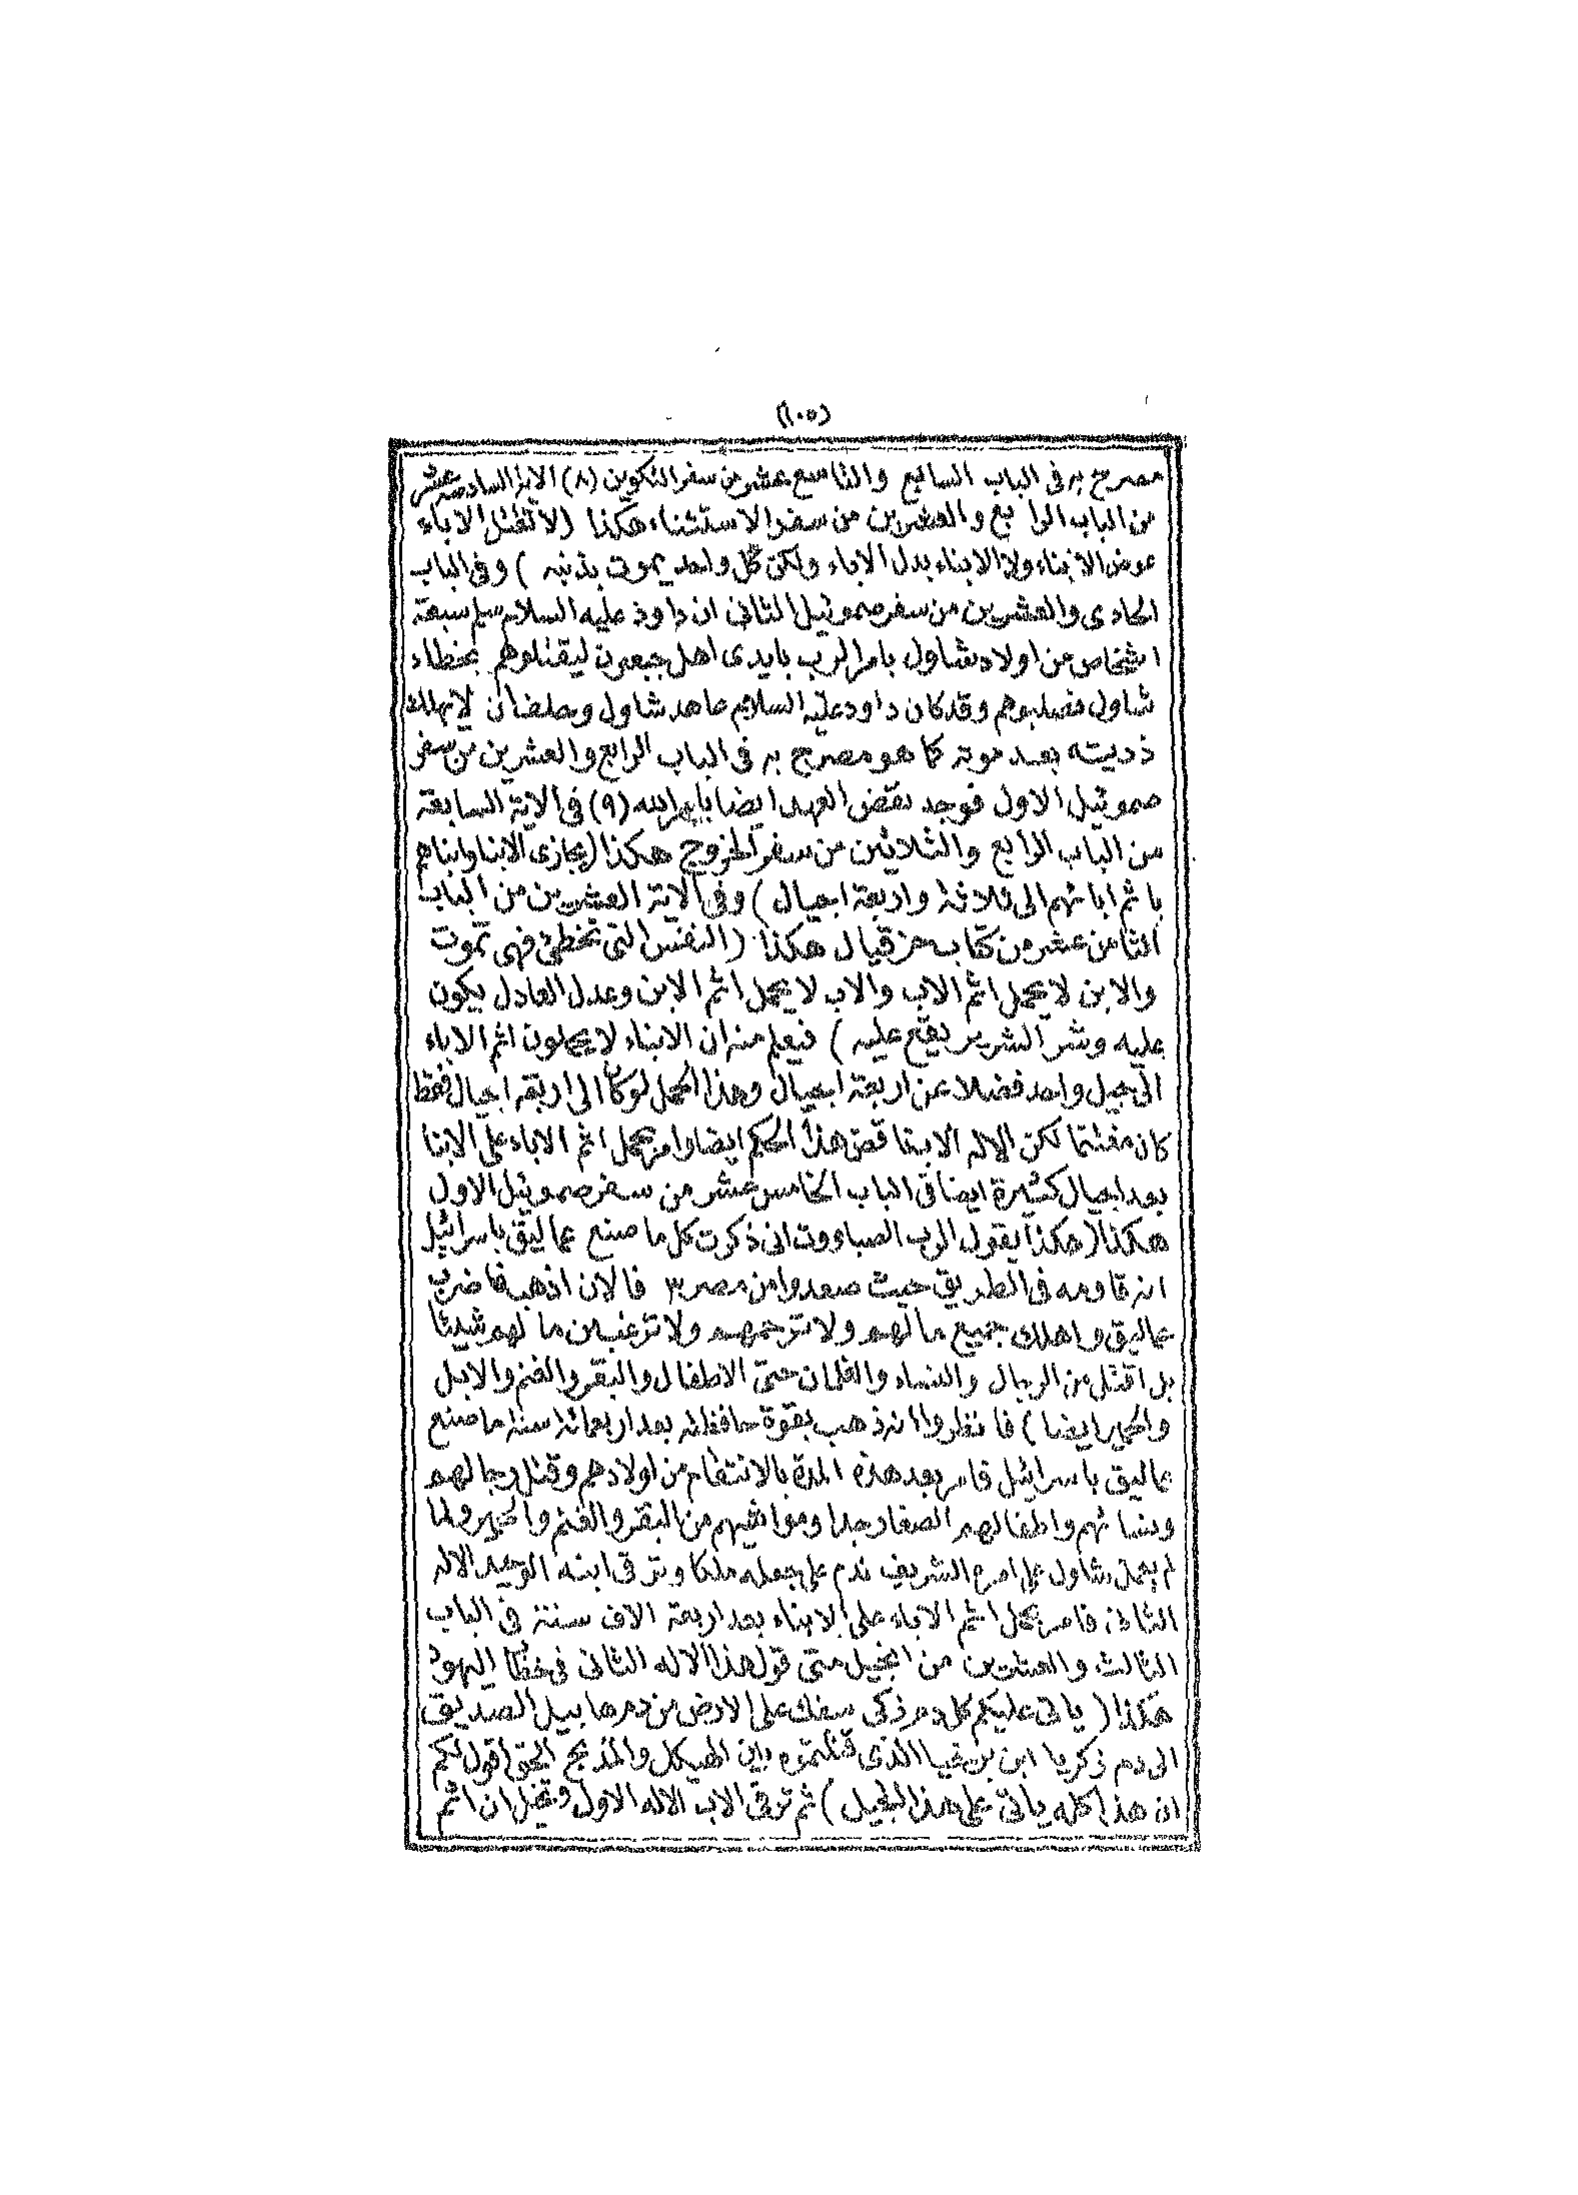 (١٠٥)
مصرح به فى الباب السابع والتاسع عشر من سفر التكوين (٨) الاية السادسة عشر
من الباب الرابع والعشرين من سفر الاستثناء هكذا (لا تقتل الاباء
عوض الابناء ولا الابناء بدل الاباء ولكن كل واحد يموت بذنبه) وفى الباب
الحادى والعشرين من سفر صموئيل الثانى ان داود عليه السلام سلم سبعة
اشخاص من اولاد شاول بامر الرب بايدى اهل جبعون ليقتلوهم بخطاء
شاول فصلبوهم وقد كان داود عليه السلام عاهد شاول وحلف ان لا يهلك
ذريته بعد موته كما هو مصرح به فى الباب الرابع والعشرين من سفر
صموئيل الاول فوجد نقض العهد ايضا بامر الله (٩) فى الاية السابعة
من الباب الرابع والثلاثين من سفر الخروج هكذا (يجازى الابنا وابناهم
باثم ابائهم الى ثلاثة واربعة اجيال) وفى الاية العشرين من الباب
الثامن عشر من كتاب حزقيال هكذا (النفس التى تخطئ فهى تموت
والابن لا يحمل اثم الاب والاب لا يحمل اثم الابن وعدل العادل يكون
عليه وشر الشرير يقع عليه) فيعلم منه ان الابناء لا يحملون اثم الاباء
الى جيل واحد فضلا عن اربعة اجيال وهذا الحمل لو كان الى اربعة اجيال فقط
كان مغتنما لكن الاله الاب ناقض هذا الحكم ايضا وامر بحمل اثم الاباء على الابنا
بعد اجيال كثيرة ايضا فى الباب الخامس عشر من سفر صموئيل الاول
هكذا (هكذا يقول الرب الصباووت انى ذكرت كل ما صنع عماليق باسرائيل
انه قاومه فى الطريق حيث صعدوا من مصر ٣ فالان اذهب فاضرب
عماليق واهلك جميع ما لهم ولا ترحمهم ولا ترغب من ما لهم شيئا
بل اقتل من الرجال والنساء والغلمان حتى الاطفال والبقر والغنم والابل
والحمير ايضا) فانظروا انه ذهب بقوة حافظته بعد اربعمائة سنة ما صنع
عماليق باسرائيل فامر بعد هذه المدة بالانتقام من اولادهم وقتل رجالهم
ونسائهم واطفالهم الصغار جدا ومواشيهم من البقر والغنم والحمير ولما
لم يعمل شاول على امره الشريف ندم على جعله ملكا وترقى ابنه الوحيد الاله
الثانى فامر بحمل اثم الاباء على الابناء بعد اربعة الاف سنة فى الباب
الثالث والعشرين من انجيل متى قول هذا الاله الثانى فى خطاب اليهود
هكذا (ياتى عليكم كل دم زكى سفك على الارض من دم هابيل الصديق
الى دم زكريا ابن برخيا الذى قتلتموه بين الهيكل والمذبح الحق اقول لكم
ان هذا كله ياتى على هذا الجيل) ثم ترقى الاب الاله الاول وتخيل ان اثم